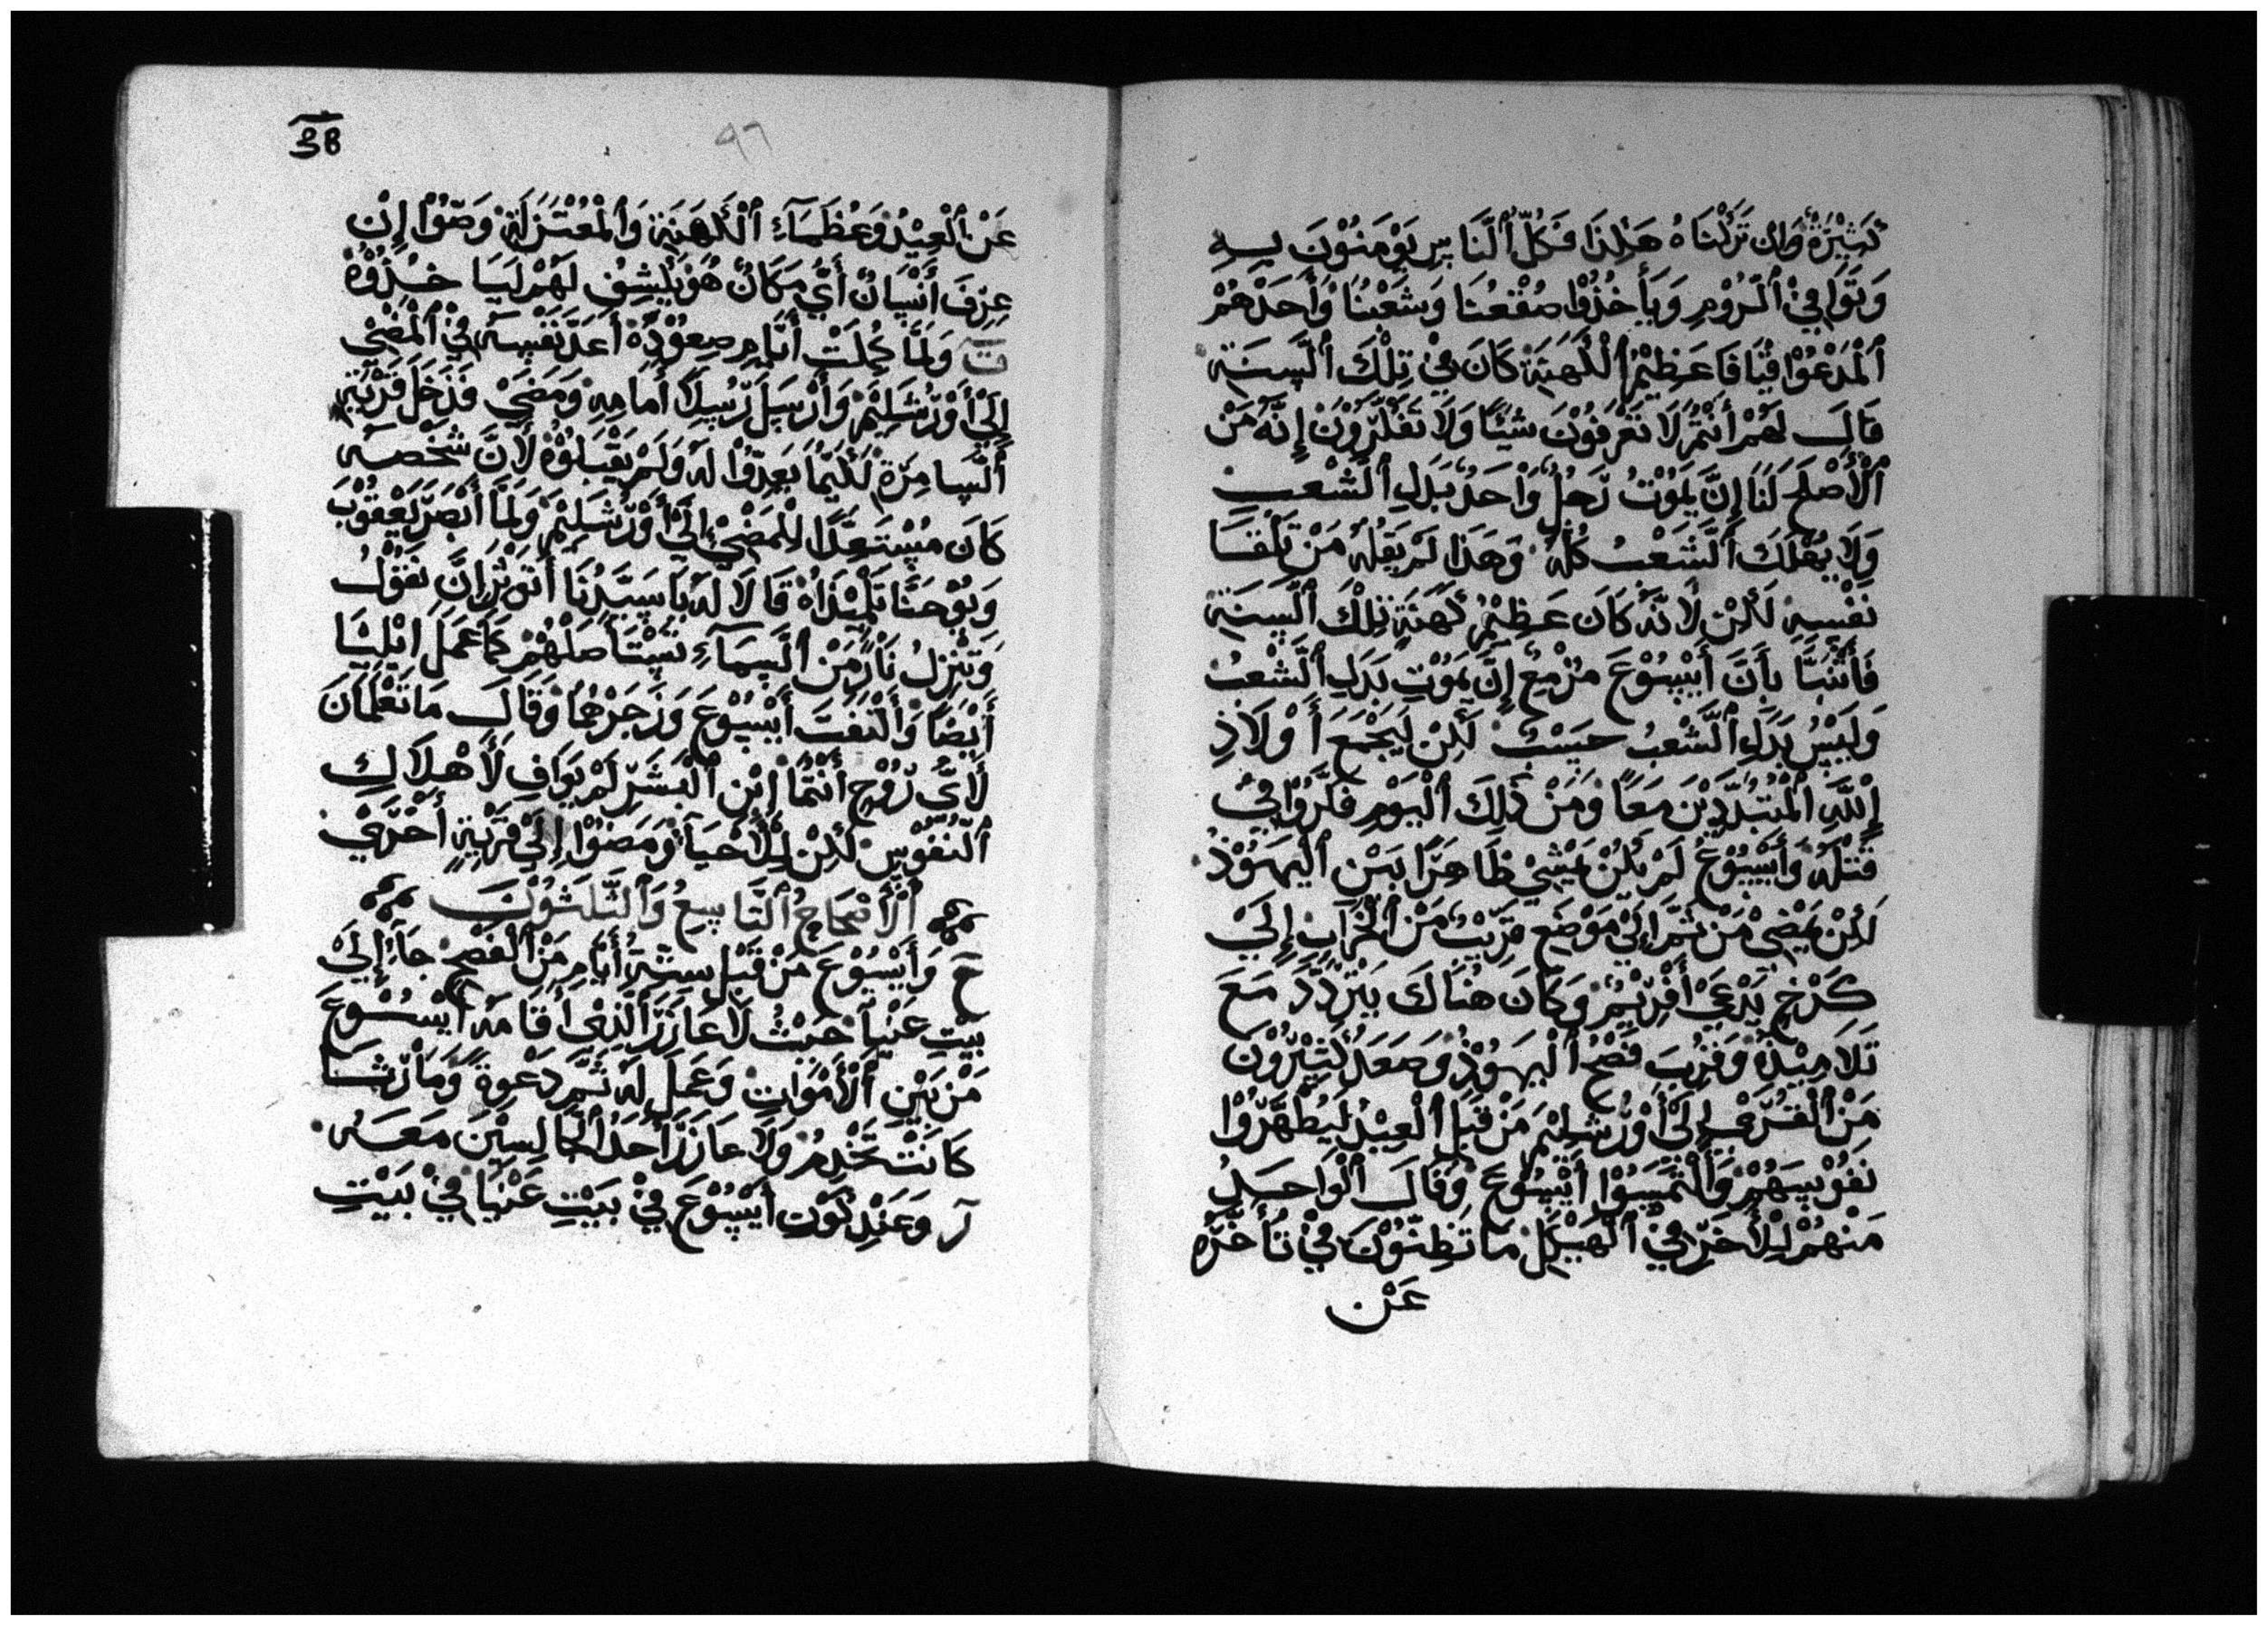 كَثِيْرَةً وَان تَرَكْنَاهُ هَكِذَا فَكُلُّ ٱلنَّاسِ يَوْمَنُوْنَ بِهِ
وَتَوَافِيْ ٱلرُّوْمِ وَيَأْخُذُوْا صُقْعُنَا وَشَعْبُنَا وَأَحَدْهُمْ
ٱلْمَدْعُوْا قَيَافَا عَظِيْمُ ٱلْكَهَنَةِ كَانَ فِيْ تِلْكَ ٱلسَّنَةِ
قَالَ لَهُمْ أَنْتُمْ لَا تَعْرِفُوْنَ شَيْئًا وَلَا تَفْكُرُوْنَ إِنَّهُ مَنْ
ٱلْأَصْلَحِ لَنَا إِنَّ يَمُوْتُ رَجُلٌ وَاحَدٌ بَدَلِ ٱلشَّعْبِ
وَلَا يُهْلَكَ ٱلشَّعْبُ كُلُّهُ وَهَذَا لَمْ يَقِلْهُ مَنْ تِلْقَا
نَفْسِهِ لَكِنْ لَانَّهُ كَانَ عَظِيْمُ كَهَنَةِ تِلْكَ ٱلسَّنَةِ
فَأَنْبَّا بِأَنَّ أَيْسُوْعَ مُزْمِعٌ إِنَّ يَمُوْتِ بَدَلِ ٱلشَّعْبُ
وَلَيْسُ بَدَلِ ٱلشَّعْبُ حَسْبُ لَكِنْ لَيَجْمَعَ أَوْلَادِ
إِللَّهِ ٱلْمُتَبَدِّدِيْنَ مَعًا وَمَنْ ذَلِكَ ٱلْيَوْمِ فَكَّرُوْا فِيْ
قَتْلَهُ وَأَيْسُوْعُ لَمْ يَكُنْ يَمْشِيْ ظَاهِرًا بَيْنِ ٱلْيَهُوْدْ
لَكِنْ يَمْضِيْ مَنْ ثَمَّ إِلَيْ مَوْضِعِ قَرِيْبٌ مَنْ ٱلْخَرَابِ إِلَيْ
كَرْخٍ يَدْعَيْ أَفْرِيْمُ وَكَانَ هُنَاكَ يَتْرَدَّدْ مَعَ
تَلَامِيْذُهُ وَقَرُبَ فِصْحُ ٱلْيَهُوْدِ وَصَعَدَ كَثِيْرُوْنَ
مَنْ ٱلْقُرَيْ إِلَيْ أَوْرُشَلِيْمَ مَنْ قَبْلِ ٱلْعِيْدُ لَيُطَهِّرُوْا
نَفُوْسِهُمْ وَٱلْتَمَسُوْا أَيْسُوْعَ وَقَالَ ٱلْوَاحِدِ
مَنْهُمْ لِلْأَخَرِ فِيْ ٱلْهَيْكَلْ مَا تَظِنُّوْنَ فِيْ تَأَخُّرِهِ
عَنْ
38
٩٦
عَنْ ٱلْعِيْدْ وَعُظَمَآءِ ٱلْكَهَنَةِ وَٱلْمُعْتَزِلَةُ وَصَّوْا إِنْ
عِرِفَ أَنْسَانٌ أَيُّ مَكَانٌ هُوَ يَكْشِفُ لَهُمْ لَيَا خُذُوْهُ
ت وَلَمَّا كَمَلَتْ أَيَّامِ صِعُوْدِهُ أَعَدَّ نَفْسَهُ فِيْ ٱلْمَضْيِ
إِلَيْ أَوْرُشَلِيْمُ وَأَرْسَلَ رُسِلًا أَمَامِهِ وَمَضَيْ فَدَخَلَ قَرْيَةِ
ٱلسَّامِرَةِ لَكَيْمَا يَعِدُّوْا لَهُ وَلَمْ يَقْبَلُوْهُ لَأَنَّ شَخْصَهُ
كَانَ مُسْتَعِدًّا لِلْمَضْيِ إِلَيْ أَوْرُشَلِيْمُ وَلَمَّا أَبْصَرَ يَعْقُوْبَ
وَيُوْحَنَّا تَلْمِيْذَاهُ قَالَا لَهُ يَا سَيَّدْنَا أَتَوْثِرُ انَّ نَقُوْلُ
وَتَنْزِلُ نَارٌ مَنْ ٱلسَّمَآءِ تَسْتَأصَلَهُمْ كَمَا عَمَلَ ايْلِيْيَا
أَيْضًا وَٱلْتَفَتَ أَيْسُوْعَ وَزَجَرْهُمَا وَقَالَ مَا تَعْلَمَانَ
لَأيِّ رُوْحٍ أَنْتُمَا إِبْنِ ٱلْبَشَرِ لَمْ يَوَافِ لَأَهْلَاكِ
ٱلنَّفُوْسِ لَكِنْ لِلْأَحْيَآ وَمَضُوْا إِلَيْ قَرْيَةٍ أُخْرَيْ
ٱلْأَصْحَاحُ ٱلتَّاسِعُ وَٱلثَّلَثُوْنَ
حَ وَأَيْسُوْعَ مَنْ قَبْلِ سِتَّةُ أَيَّامِ مَنْ ٱلْفَصْحِ جَآءَ إِلَيْ
بَيْتِ عَنْيَا حَيْثُ لَاعَازَرَ ٱلَّذِيْ أَقَامَهُ أَيْسُوْعَ
مَنْ بَيْنِ ٱلْأَمْوَاتِ وَعَمَلَ لَهُ ثَمَّ دَعْوَةً وَمَارْثَا
كَانَتْ تَخْدِمُ وَلَاعَازَرَ أَحَدُ ٱلْجَالِسِيْنَ مَعَهُ
رَ وَعَنْدِ كَوْنِ أَيْسُوْعَ فِيْ بَيْتِ عَنْيَا فِيْ بَيْتِ